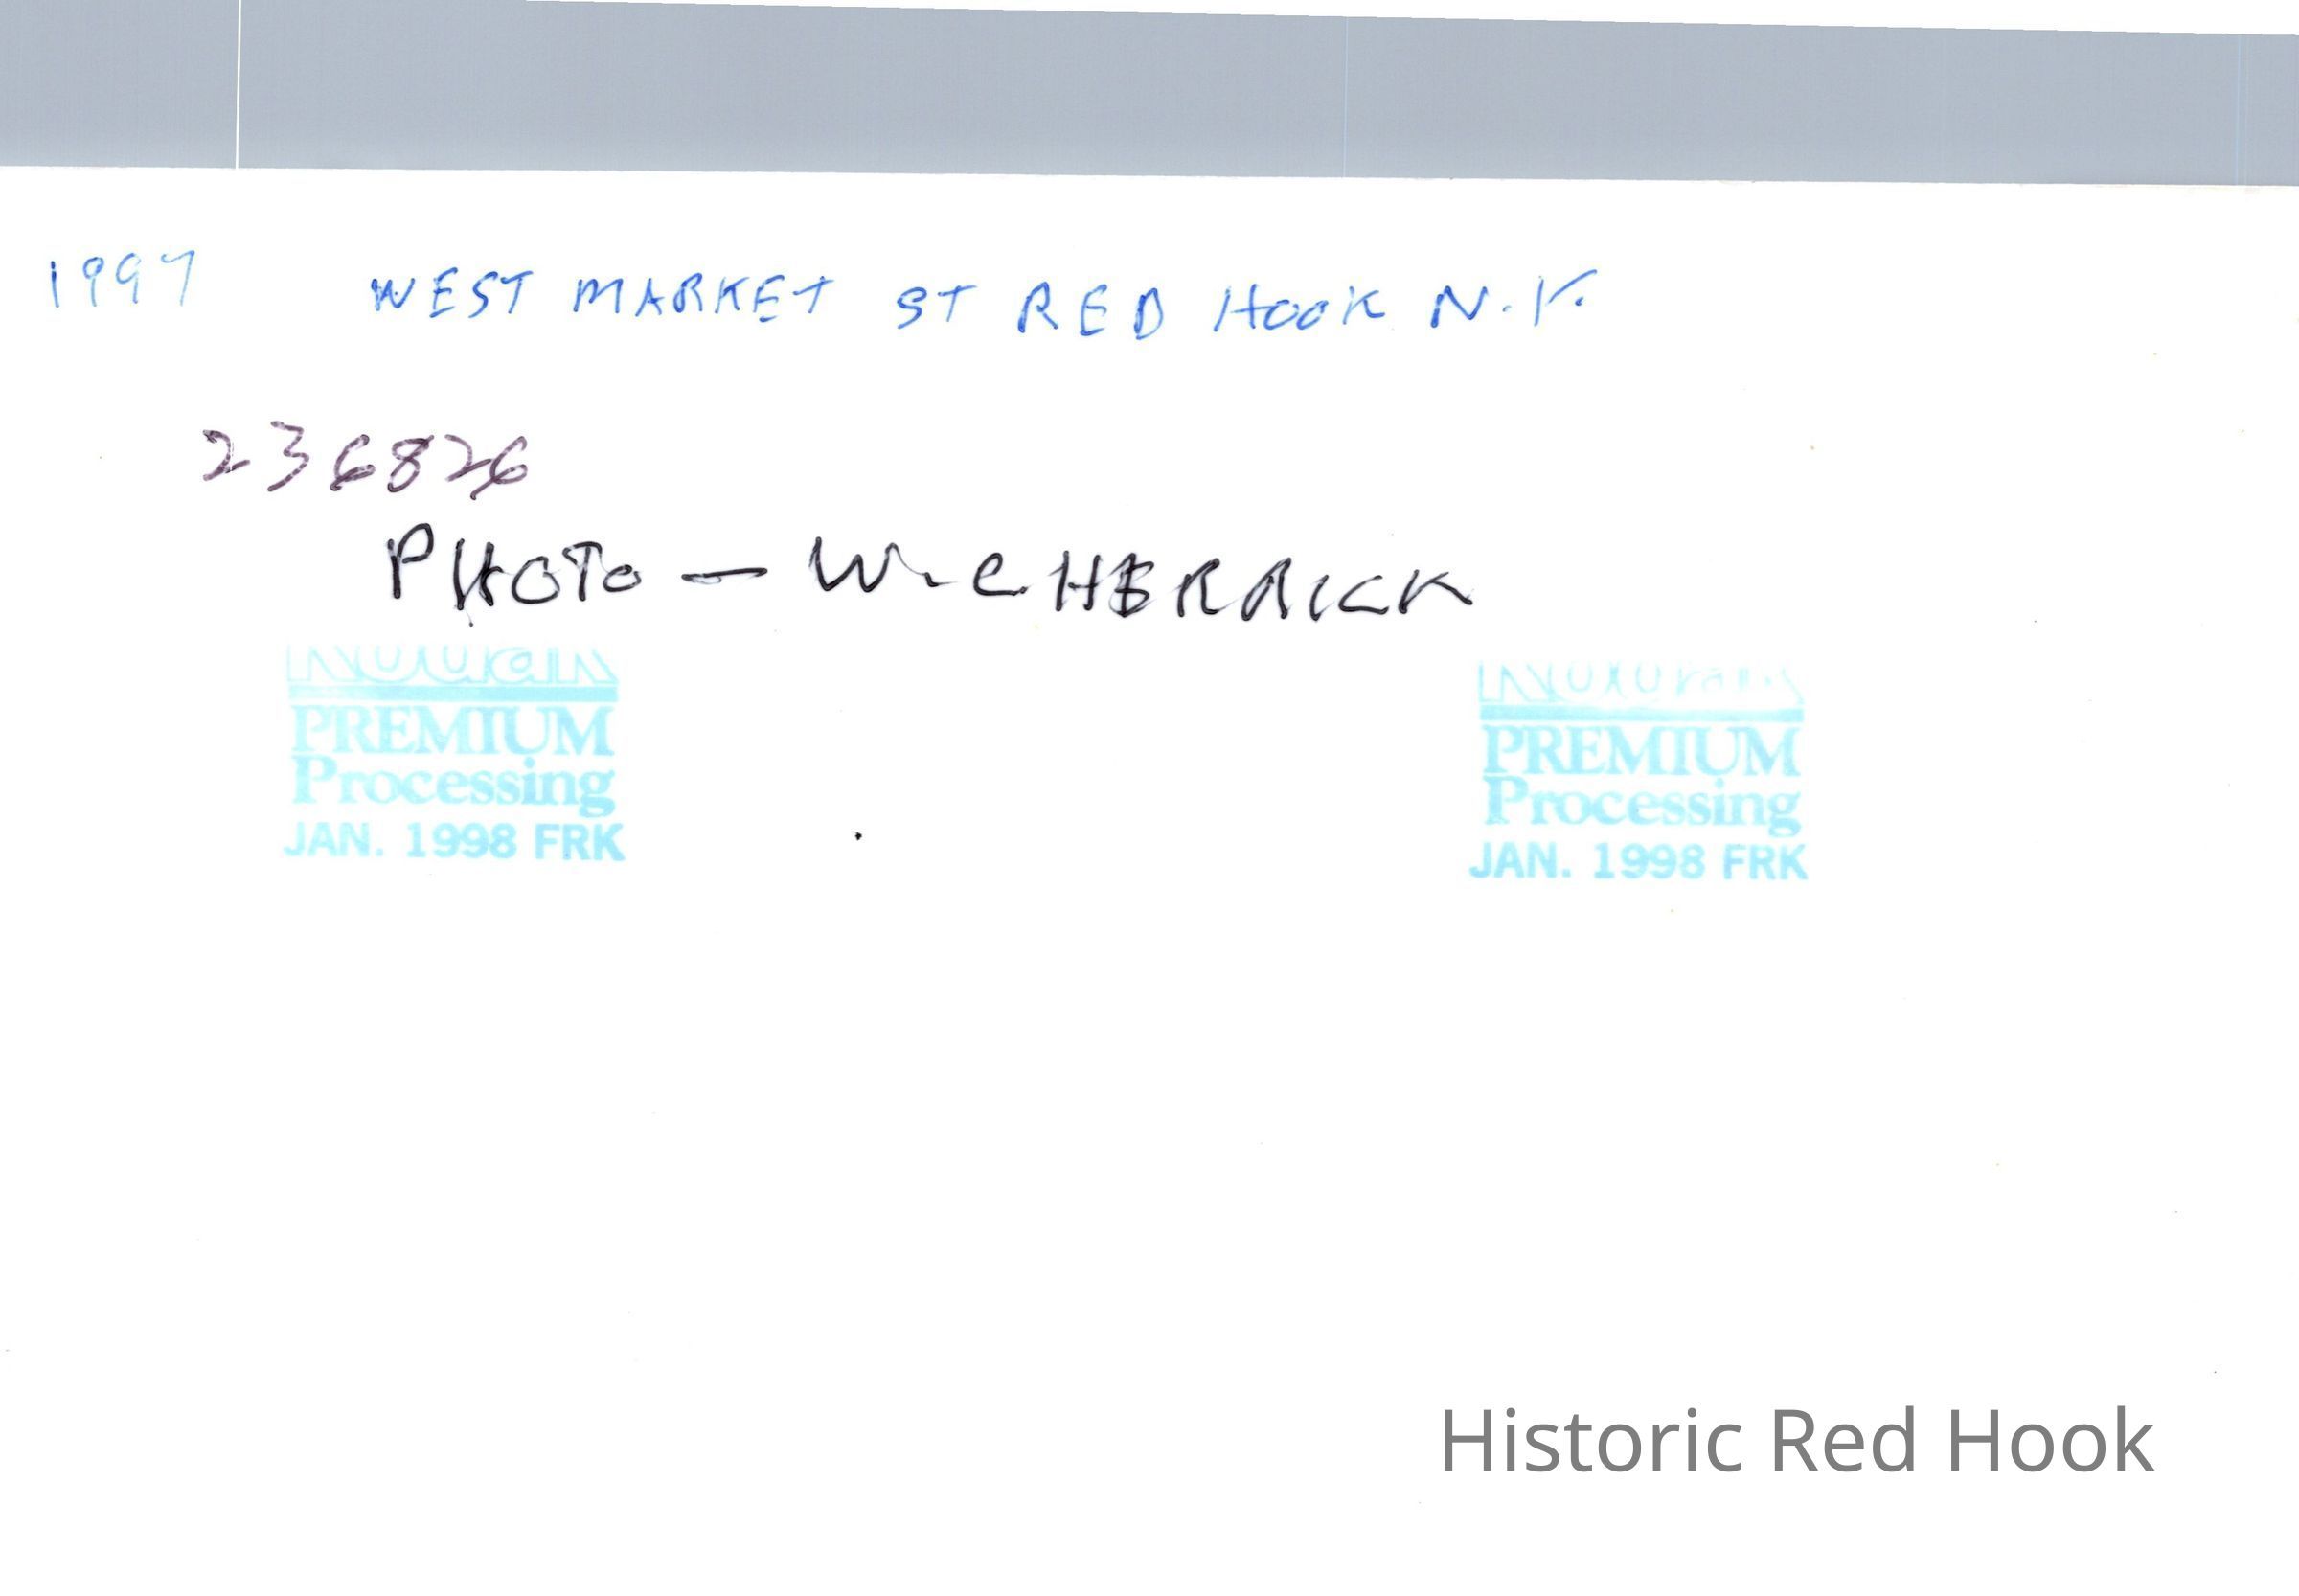 1997 WEST MARKET ST RED HOOK N.Y.
236826
PHOTO — W. C HERRICK
Kodak
PREMIUM
Processing
JAN. 1998 FRK
Kodak
PREMIUM
Processing
JAN. 1998 FRK
Historic Red Hook